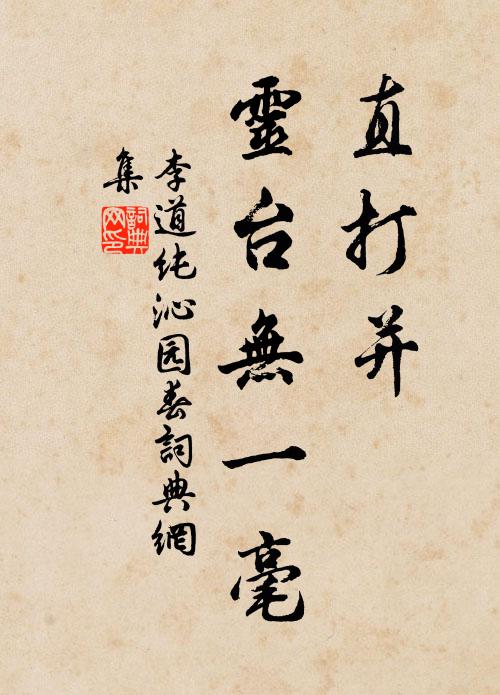 直打并
靈台無一毫
李道纯沁园春詞典網
集
詞典
网印